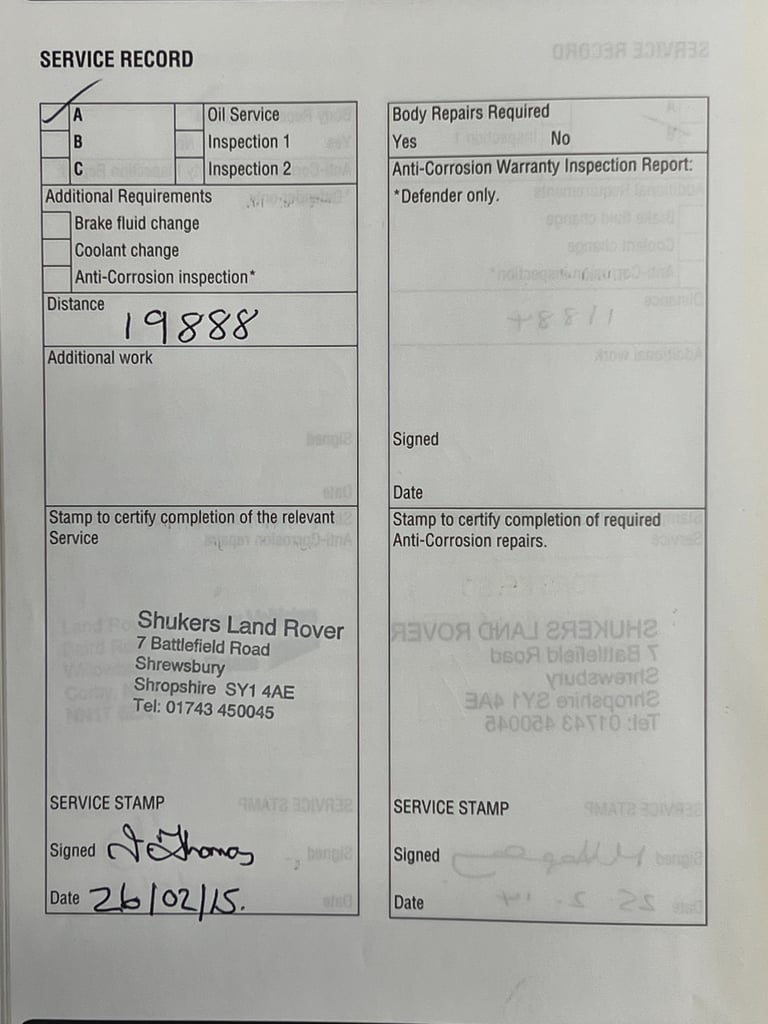 SERVICE RECORD
A Oil Service
B Inspection 1
C Inspection 2
Additional Requirements
Brake fluid change
Coolant change
Anti-Corrosion inspection*
Distance
19888
Additional work
Stamp to certify completion of the relevant
Service
Shukers Land Rover
7 Battlefield Road
Shrewsbury
Shropshire SY1 4AE
Tel: 01743 450045
SERVICE STAMP
Signed J Thomas
Date 26/02/15.
Body Repairs Required
Yes No
Anti-Corrosion Warranty Inspection Report:
*Defender only.
Signed
Date
Stamp to certify completion of required
Anti-Corrosion repairs.
SERVICE STAMP
Signed
Date